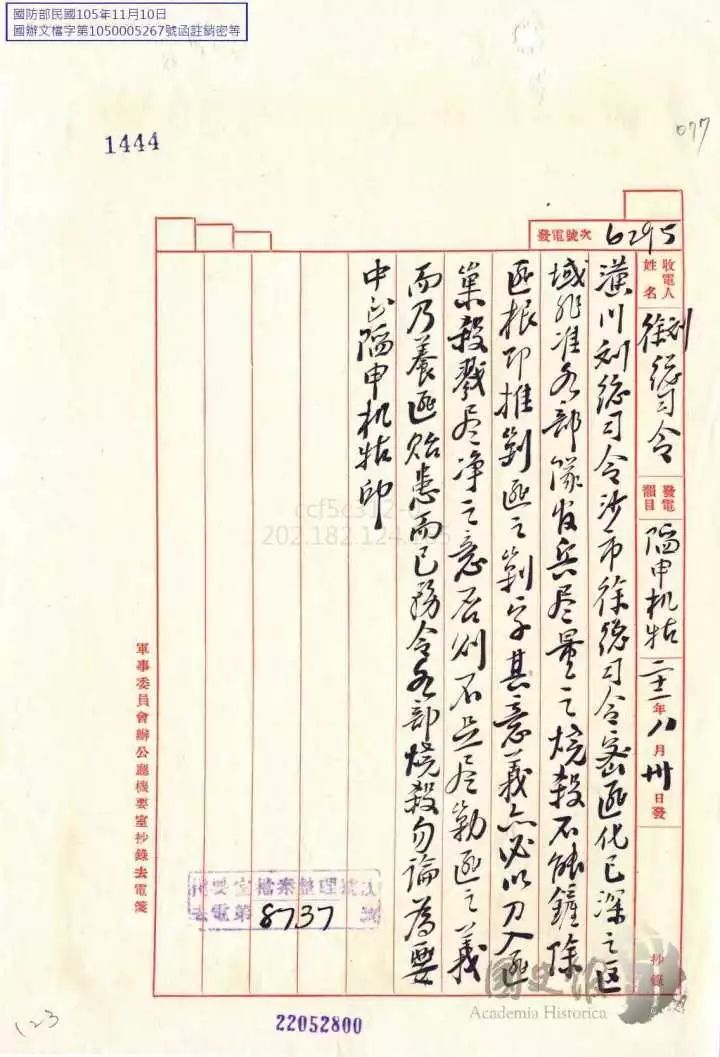 國防部民國105年11月10日
國辦文檔字第1050005267號函註銷密等
1444
077
發電號次 6295
收電人姓名 劉徐總司令 發電韻目 陷申机牯 二十一年八月卅日發 抄錄
潢川刘總司令沙市徐總司令密匪化已深之區
域非准各部隊发兵尽量之燒殺不能鏟除
匪根即推剿匪之剿字其意義亦必以刀入匪
巢殺戮尽净之意否则不足尽勦匪之義
而乃養匪贻患而已務令各部燒殺勿論為要
中正陷申机牯印
軍事委員會辦公廳機要室抄錄去電箋
機要室檔案整理號次
去電第8737號
ccf5c312-
202.182.124.
國史館
Academia Historica
123
22052800